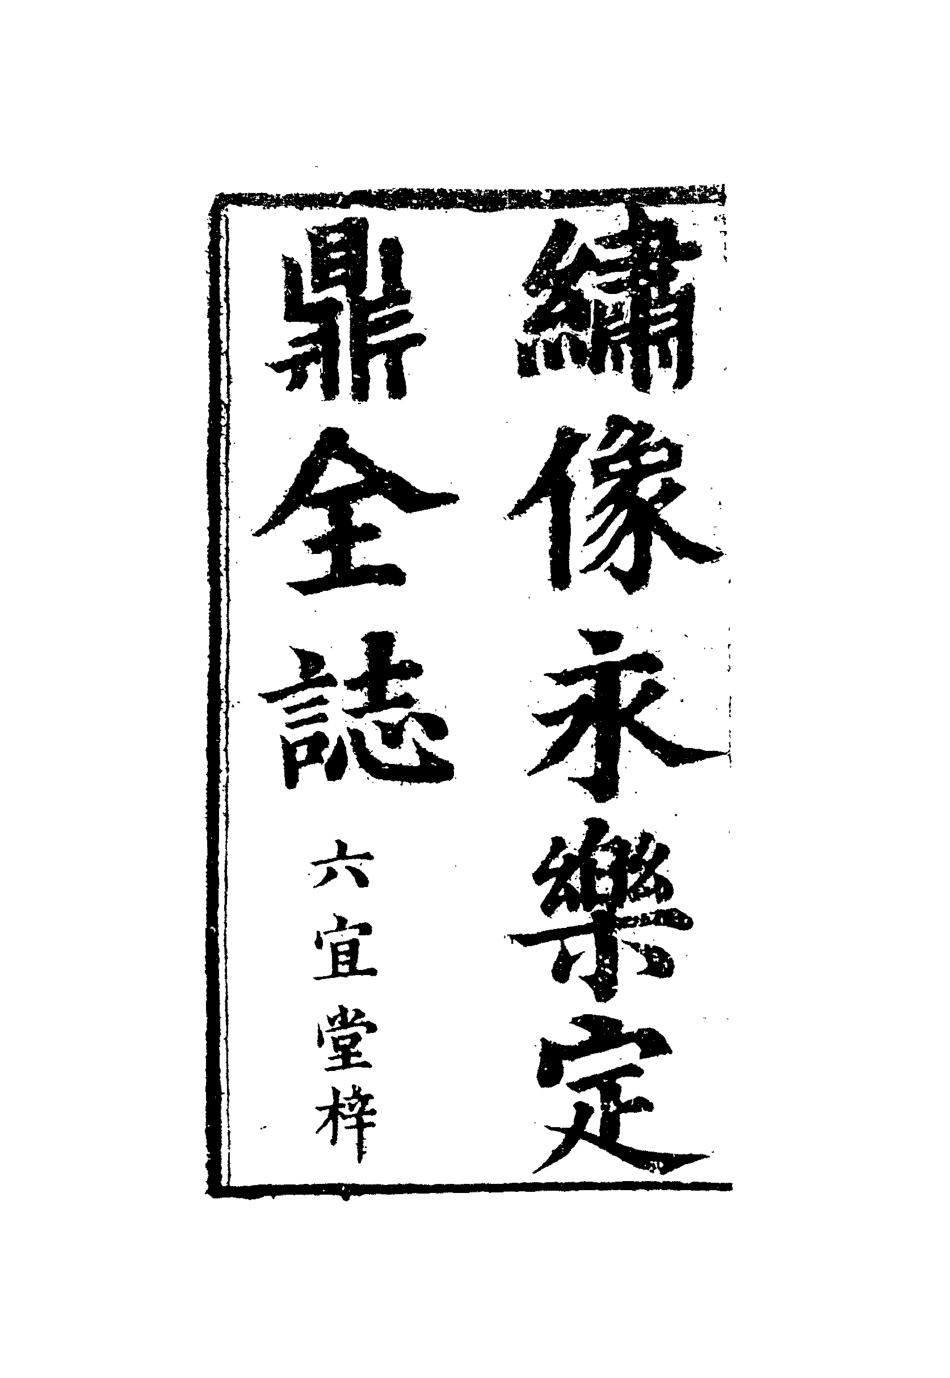 繡像永樂定
鼎全誌
六宜堂梓